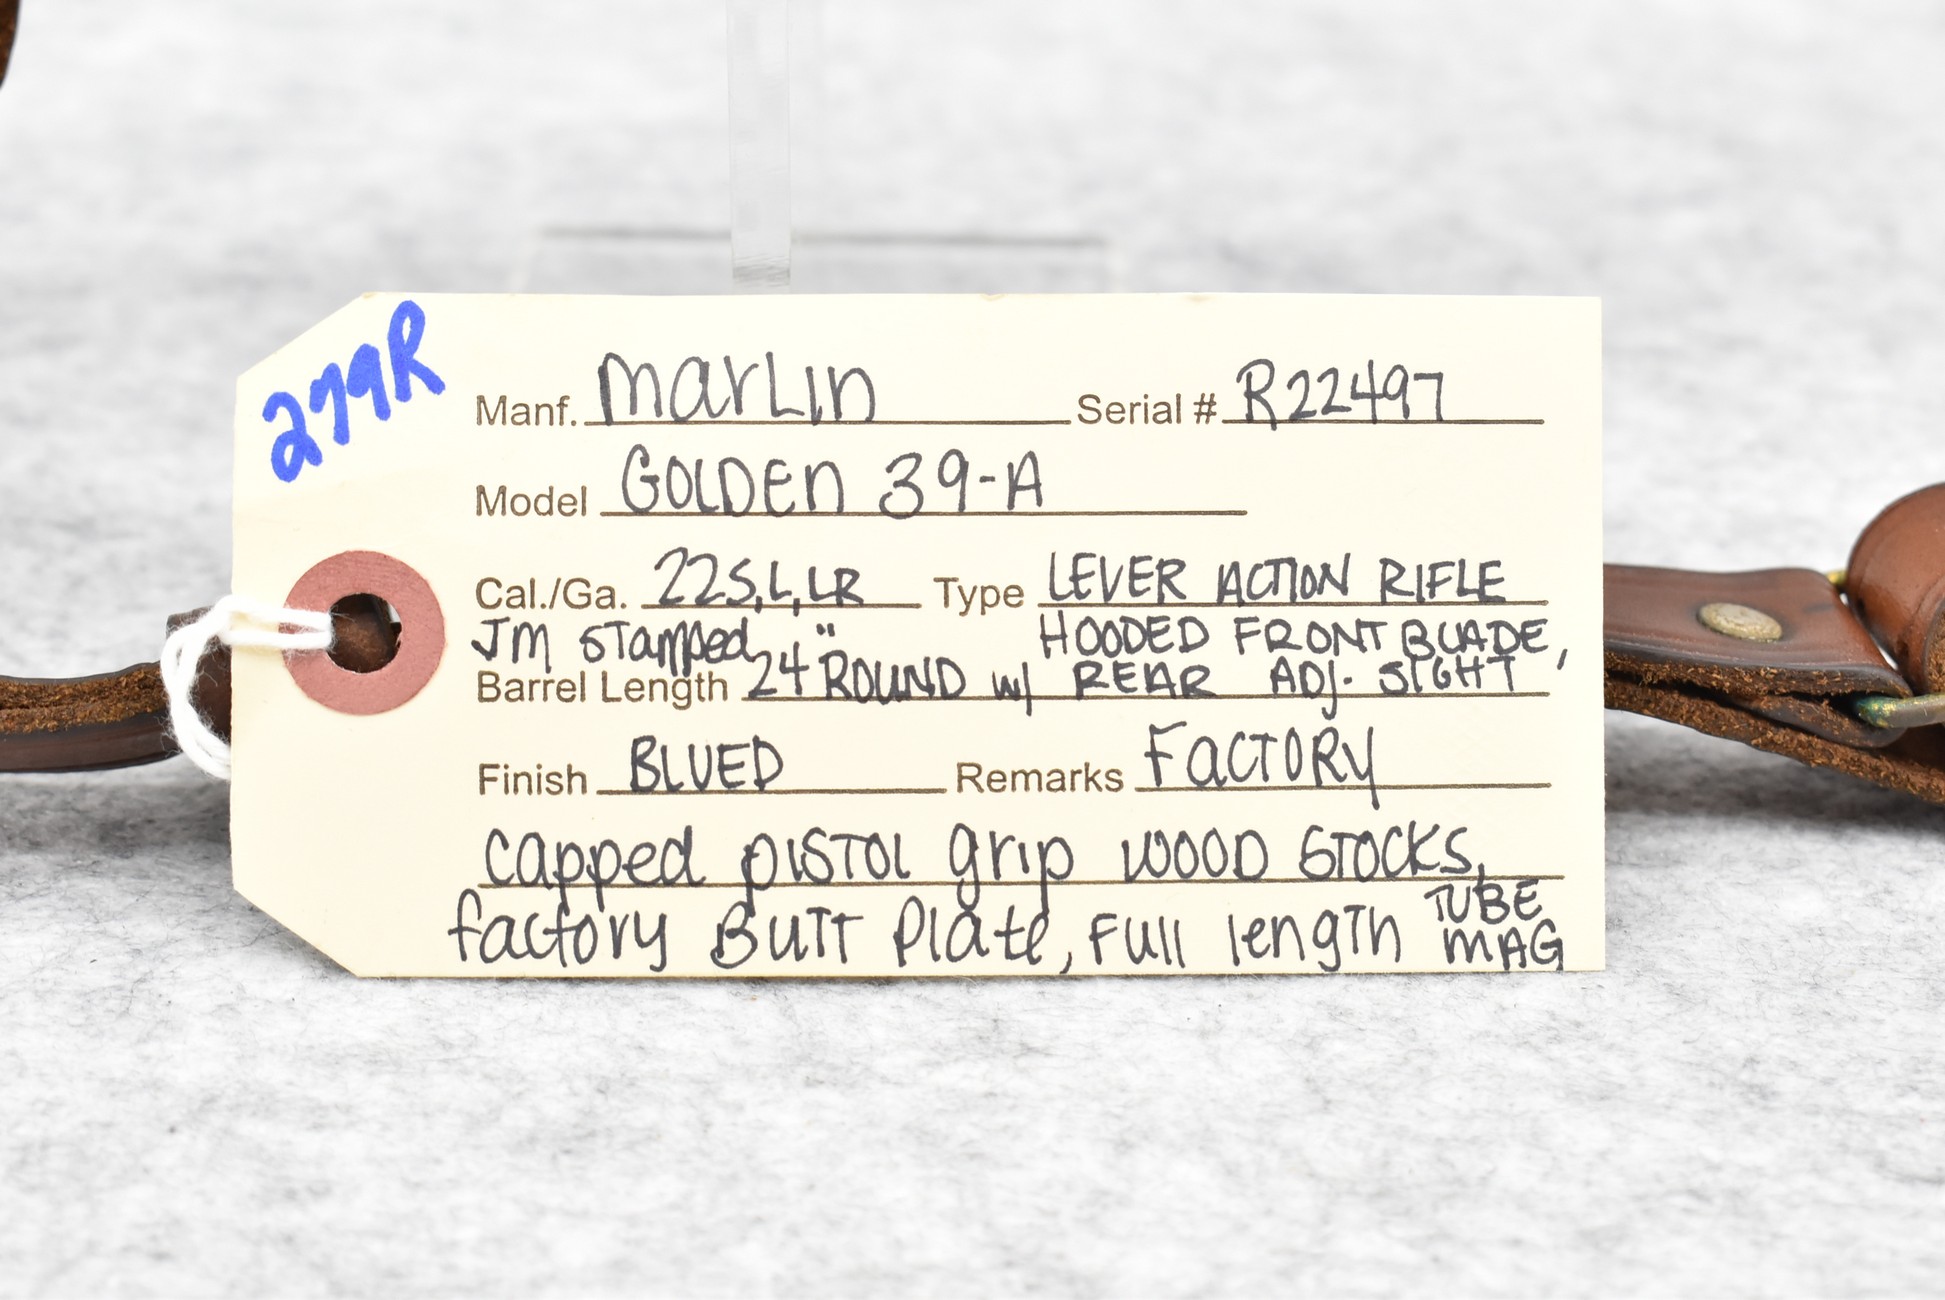 279R
Manf. Marlin Serial # R22497
Model GOLDEN 39-A
Cal./Ga. 22S,L,LR Type LEVER ACTION RIFLE
JM STamped, HOODED FRONT BLADE,
Barrel Length 24" ROUND w/ REAR ADJ. SIGHT
Finish BLUED Remarks FACTORY
capped PISTOL grip WOOD STOCKS,
factory BUTT Plate, FUll length TUBE
MAG